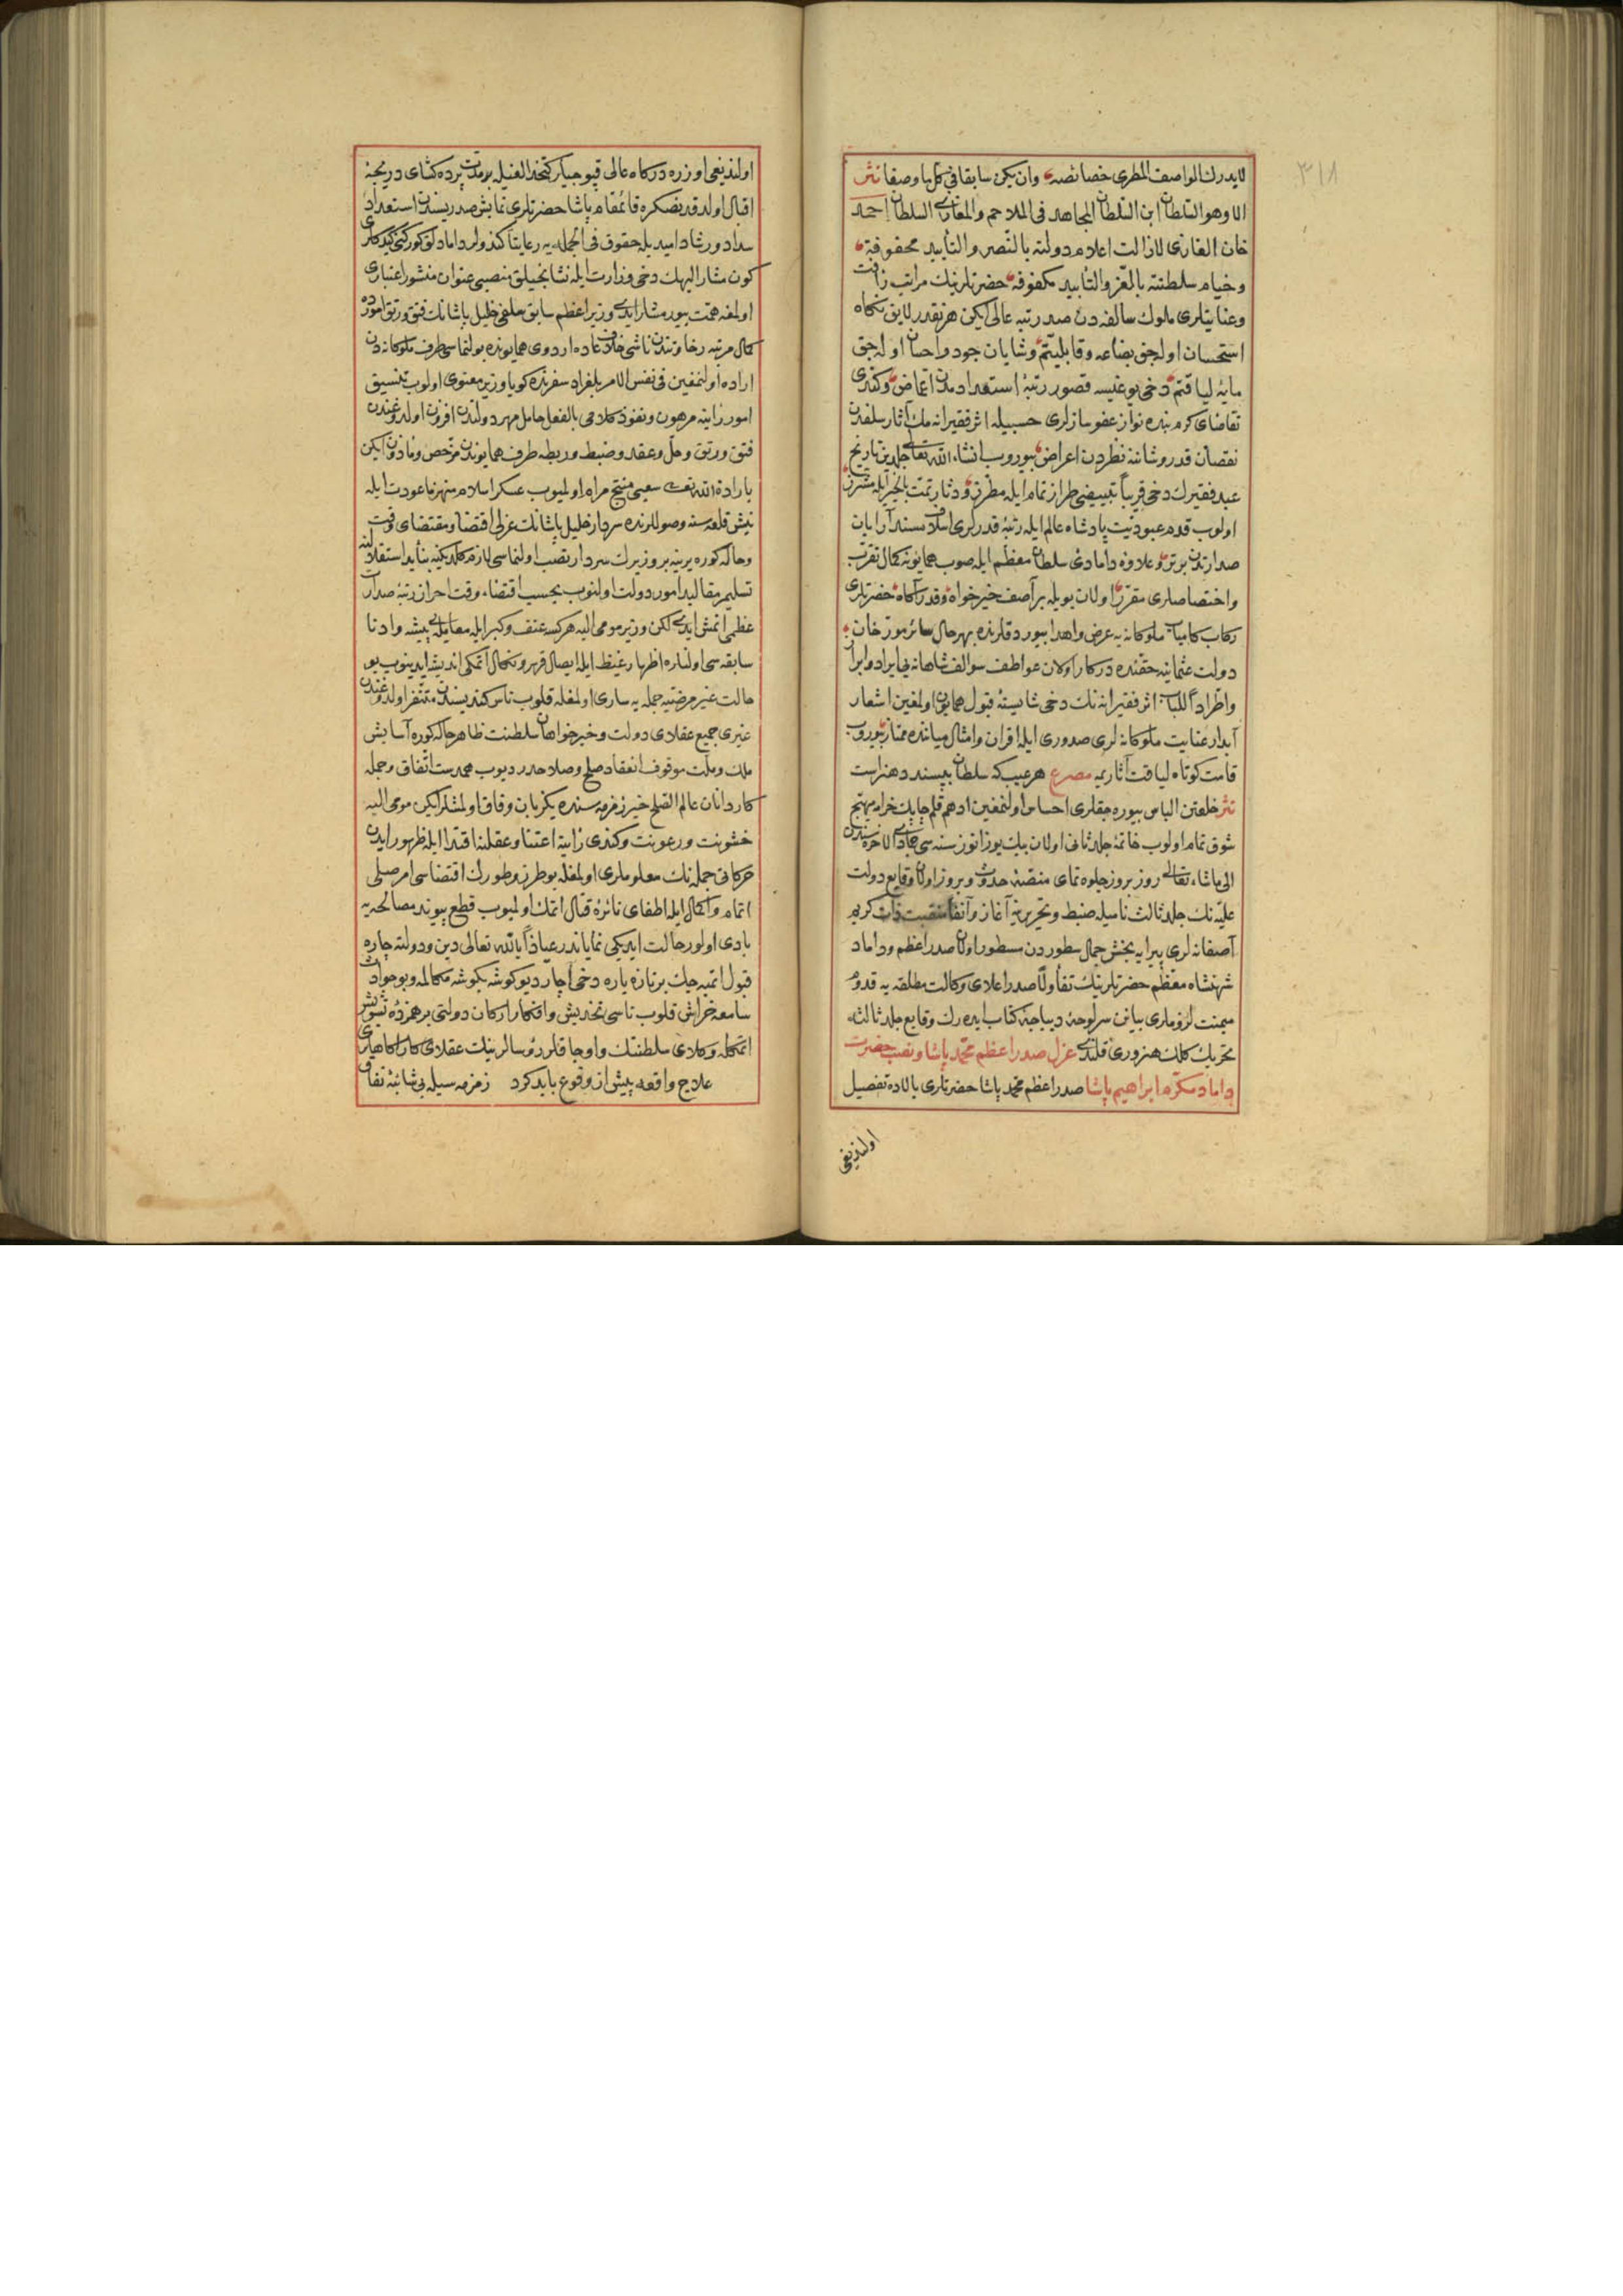 ٣١٨
لايدرك الواصف المطرى خصائصه وان يكن سابقا فى كل ما وصفا نثر
الا وهو السلطان ابن السلطان المجاهد فى الملاحم والمغازى السلطان احمد
خان الغازى لازالت اعلام دولته بالنصر والتأييد محفوفة
وخيام سلطنته بالعز والتأبيد مكفوفة حضرتلرينك مراتب رأفت
وعنايتلرى ملوك سالفه دن صد رتبه عالى ايكن هر نقدر لايق نكاه
استحسان اوله جق بضاعه وقابليتم وشايان جود واحسان اوله جق
مايه لياقتم دخى يوغيسه قصور رتبه استعدادمدن اغماض وكندى
تقاضاى كرم بنده نواز عفو سازلرى حسبيله اثر فقيرانه مك آثار سلفدن
نقصان قدر وشاننه نظردن اعراض بيوروب انشاء الله تعالى جلدين تاريخ
عبد فقيرك دخى قريباً تبييضى طراز تمام ايله مطرز ودثار تمت بالخير ايله مشرز
اولوب قدم عبوديت پادشاه عالم ايله رتبه قدرلرى اسلاف مسند آرايان
صدارتدن برتر وعلاوه دامادى سلطان معظم ايله صوب همايونه كمال تقرب
واختصاصلرى مقرر اولان بويله بر آصف خيرخواه وقدر آكاه حضرتلرى
ركاب كامياب ملوكانه يه عرض واهدا بيوردقلرنده بهرحال سائر مورخان
دولت عثمانيه حقنده دركار اولان عواطف سوالف شاهانه فى ايراد وابراد
واطراداً للباب اثر فقيرانه نك دخى شايسته قبول همايون اولمغين اشعار
آبدار عنايت ملوكانه لرى صدورى ايله اقران وامثال ميانده ممتاز بيوروب
قامت كوتاه لياقت آثاريمه مصرع هر عيب كه سلطان بپسندد هنر است
نثر خلعتن الباس بيوره جقلرى احساس اولنمغين ادهم قلم چابك خرام مهيج
شوق تمام اولوب خاتمه جلد ثانى اولان بيك يوز اوتوز سنه سى جمادى الاخره سندن
الى ماشاء تعالى روز بروز جلوه نماى منصه حدوث وبروز اولان وقايع دولت
عليه نك جلد ثالث ناميله ضبط وتحريرينه آغاز وآنفا منقبت ذات كريم
آصفانه لرى پيرايه بخش جمال سطور دن مسطور اولان صدر اعظم وداماد
شهنشاه معظم حضرتلرينك تفأولا صدر اعلاى وكالت مطلقه يه قدوم
ميمنت لزوملرى بيانن سرلوحه ديباجه كتاب ايده رك وقايع جلد ثالثه
تحريك كلك هنرورى قلندى عزل صدر اعظم محمد پاشا ونصب حضرت
داماد مكرم ابراهيم پاشا صدر اعظم محمد پاشا حضرتلرى بالاده تفصيل
اولنديغى
اولنديغى اوزره دركاه عالى قپوجيلر كتخدالغيله بر مدت پرده كشاى دريچه
اقبال اولدقدنصكره قائمقام پاشا حضرتلرى نمايش صدريسندن استعداد
سداد ورشاد اميديله حقوق فى الجمله يه رعايتاً كندولر داماد لق كوركنى كيدكلرى
كون مشار اليهك دخى وزارت ايله نشانجيلق منصبى عنوان منشور اعتبارى
اولمغه همت بيورمشلر ايدى وزير اعظم سابق سلفى خليل پاشانك فتق ورتق امورده
كمال مرتبه رخاوتندن ناشى خلاف عاده اردوى همايونده بولنماسى طرف ملوكانه دن
اراده اولنمغين فى نفس الامر بلغراد سفرنده كويا وزير معنوى اولوب تنسيق
امور رأينه مرهون ونفوذ كلامى بالفعل حامل مهر دولتدن افزون اولدوغندن
فتق ورتق وحل وعقد وضبط وربطه طرف همايوندن مرخص ومأذون ايكن
بارادة الله تعالى سعيى منتج مرام اولميوب عسكر اسلام منهزماً عودت ايله
نيش قلعه سنه وصوللرنده سردار خليل پاشانك عزلى اقتضا ومقتضاى وقت
وحاله كوره يرينه بر وزيرك سردار نصب اولنماسى لازم كلدكينه بنايد استقلال
تسليم مقاليد امور دولت اولنوب بحسب اقتضاء وقت احراز رتبه صدارت
عظمى اتمش ايدى لكن وزير مومى اليه هر كسه عنف وكبر ايله معامله بى پيشه وادنا
سابقه سى اولنلره اظهار غيظ ايله ايصال قهر ونكال اتمكى انديشه ايدينوب بو
حالت غير مرضيه جمله يه سارى اولمغله قلوب ناس كنديسندن متنفر اولدوغندن
غيرى جميع عقلاى دولت وخيرخواهان سلطنت ظاهر حاله كوره آسايش
ملك وملت موقوف انعقاد صلح وصلاحدر ديوب همدست اتفاق وجمله
كاردانان عالم الصلح خير زمزمه سنده يكزبان وفاق اولمشلر ايكن مومى اليه
خشونت ورعونت وكندى رأينه اعتنا وعقلنه اقتدا ايله ظهور ايدن
حركاتى جمله نك معلوملرى اولمغله بو طرز وطورك اقتضاسى امر صلحى
اتمام واكمال ايله اطفاى نائره قتال اتمك اولميوب قطع پيوند مصالحه يه
بادى اولور حالت ايديكى نماياندر عياذاً بالله تعالى دين ودولته چاره
قبول اتميه جك بر تازه ياره دخى آچار ديو كوشه بكوشه مكالمه وبو حوادث
سامعه خراش قلوب ناسى تخديش وافكار اركان دولتى برهمزده تشويش
اتمكله وكلاى سلطنتك واوجاقلر رؤسالرينك عقلاى كار آكاهلرى
علاج واقعه پيش از وقوع بايد كرد زمزمه سيله بى شائبه نفاق